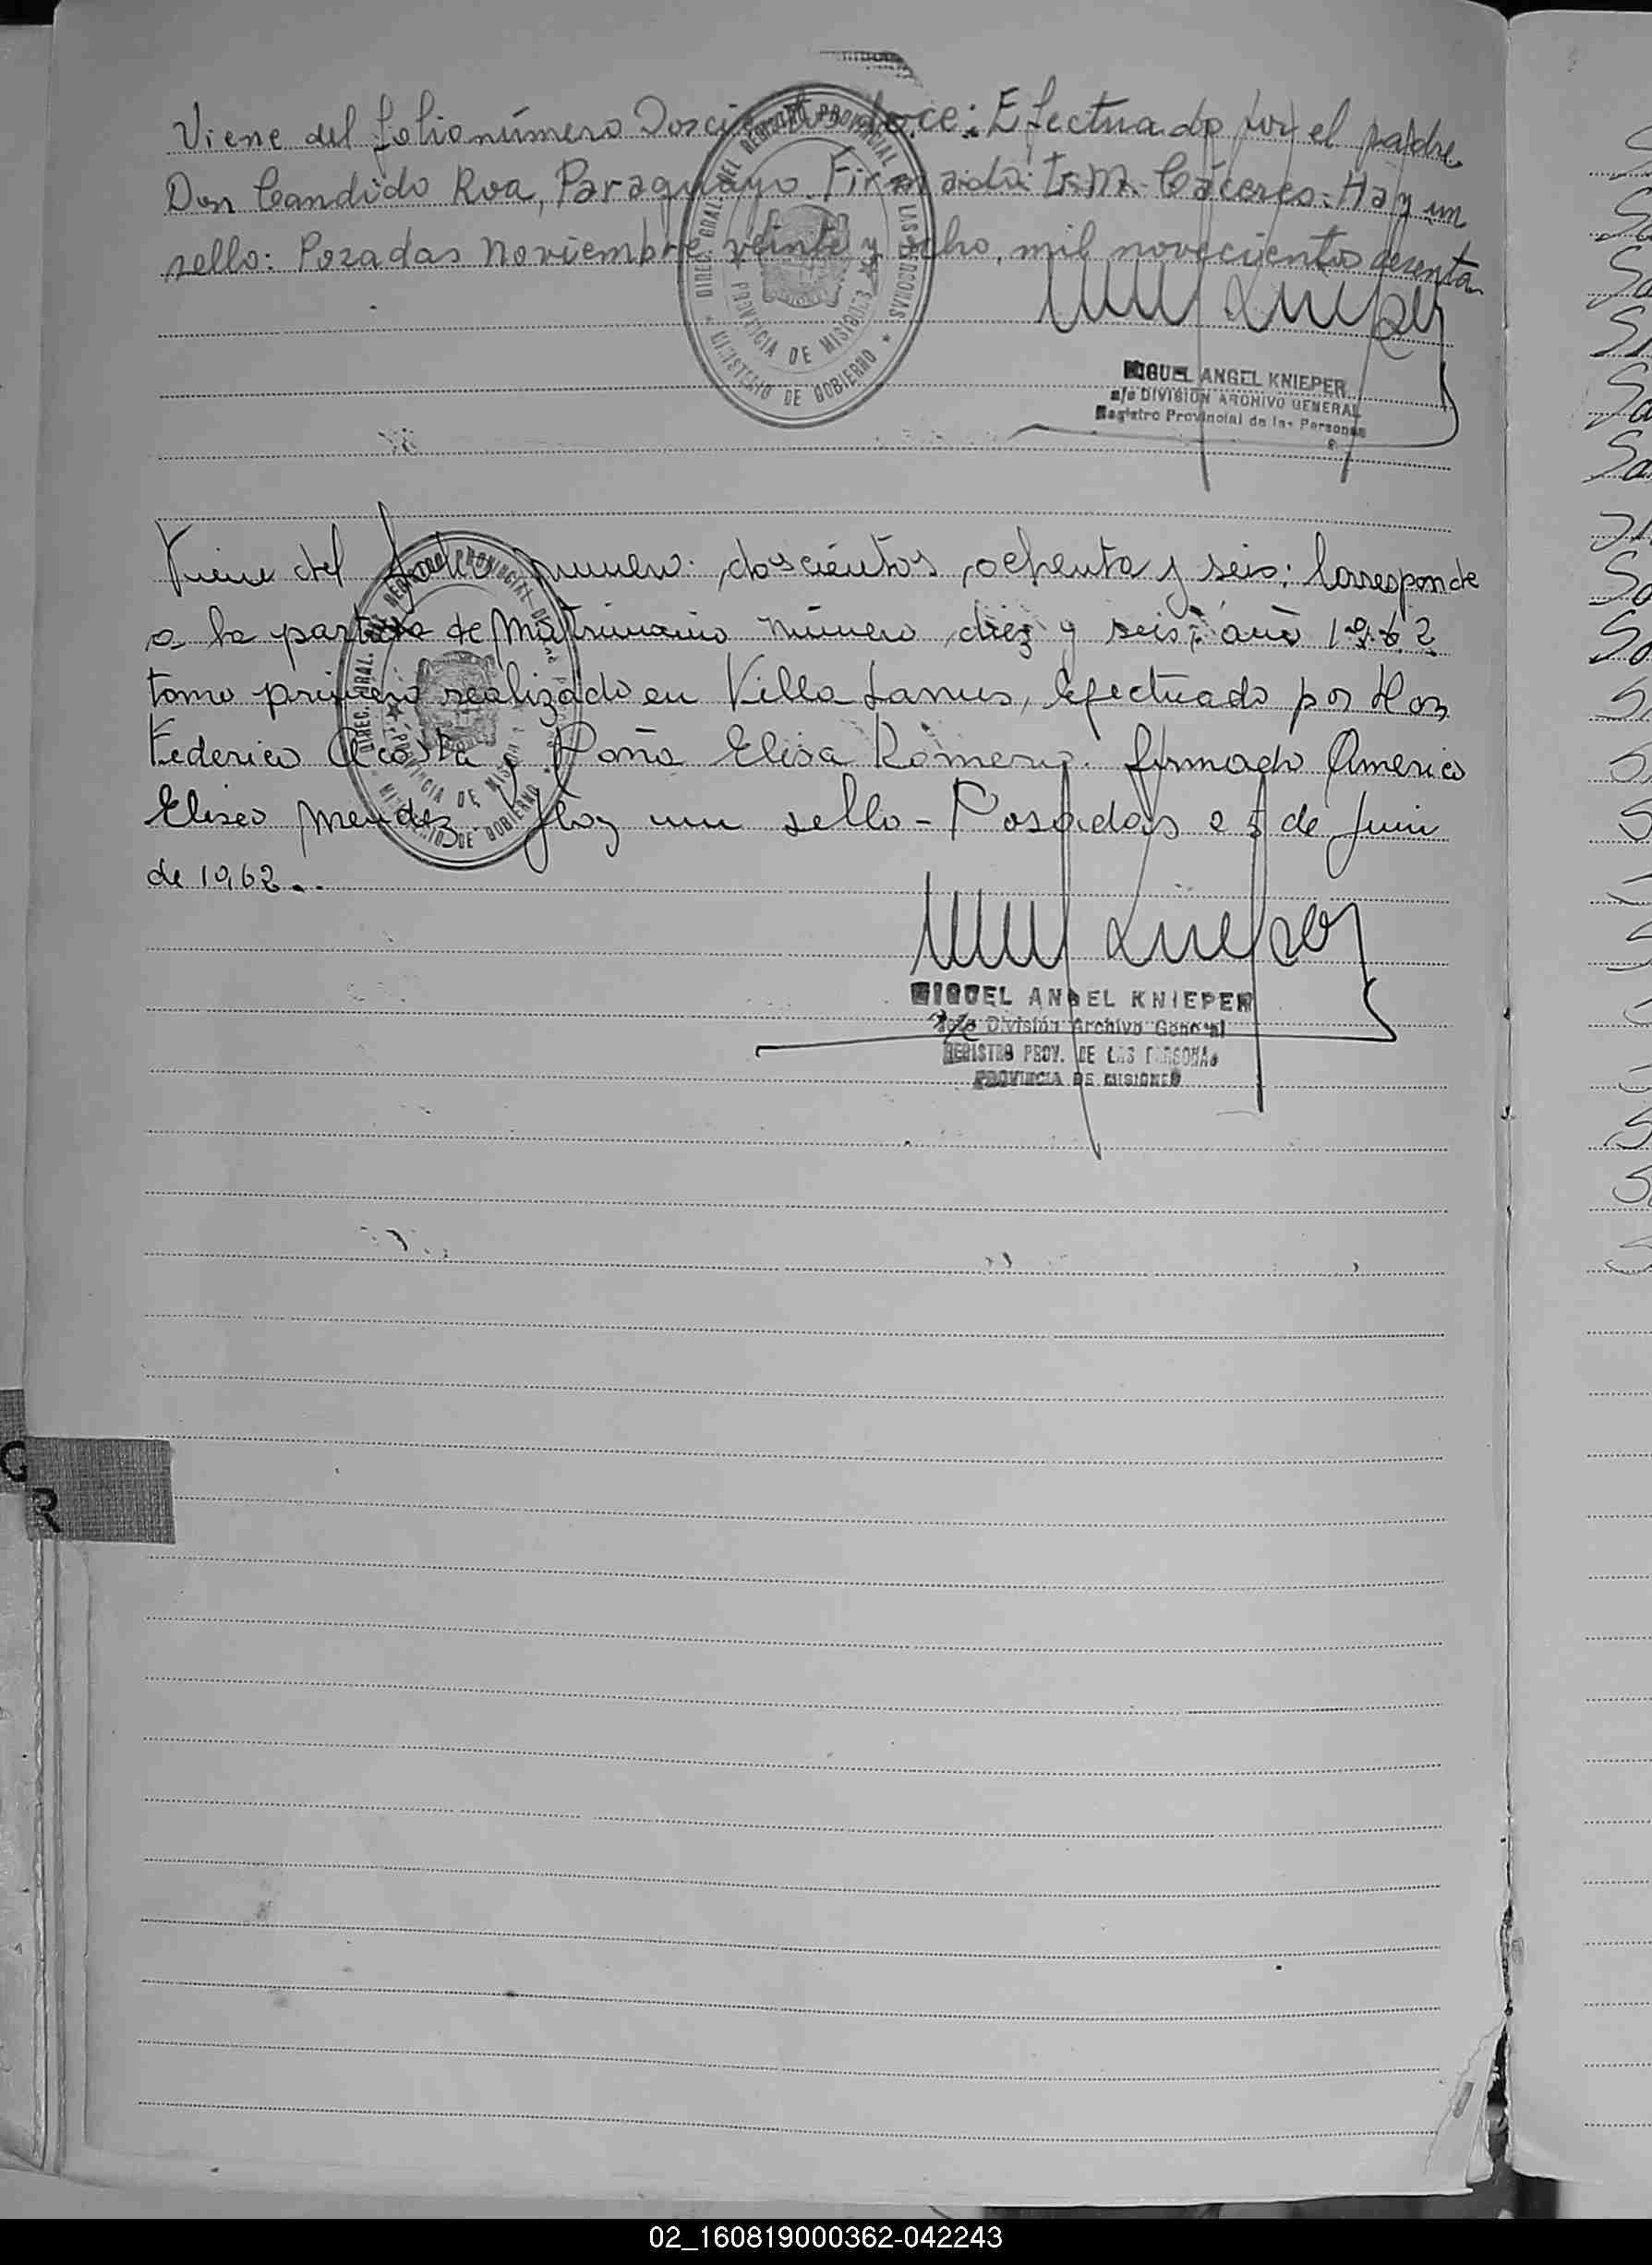 Viene del folio número Doscientos doce: Efectuado por el padre
Don Candido Roa, Paraguayo. Firmada: I. M. Cáceres. Hay un
sello: Posadas Noviembre veinte y ocho, mil novecientos sesenta
DIREC. GRAL. DEL REGISTRO PROVINCIAL DE LAS PERSONAS
PROVINCIA DE MISIONES
MINISTERIO DE GOBIERNO
MIGUEL ANGEL KNIEPER
a/c DIVISIÓN ARCHIVO GENERAL
Registro Provincial de las Personas
Viene del folio numero: doscientos ochenta y seis: Corresponde
a la partida de Matrimonio número diez y seis, año 1962
tomo primero realizado en Villa Lanus, efectuado por Don
Federico Acosta y Doña Elisa Romero. firmado Americo
Eliseo Mendez. Hay un sello - Posadas 25 de Junio
de 1962..
DIREC. GRAL. DEL REGISTRO PROVINCIAL DE
PROVINCIA DE MISIONES
MINISTERIO DE GOBIERNO
MIGUEL ANGEL KNIEPER
División Archivo General
REGISTRO PROV. DE LAS PERSONAS
PROVINCIA DE MISIONES
G
R
02_160819000362-042243